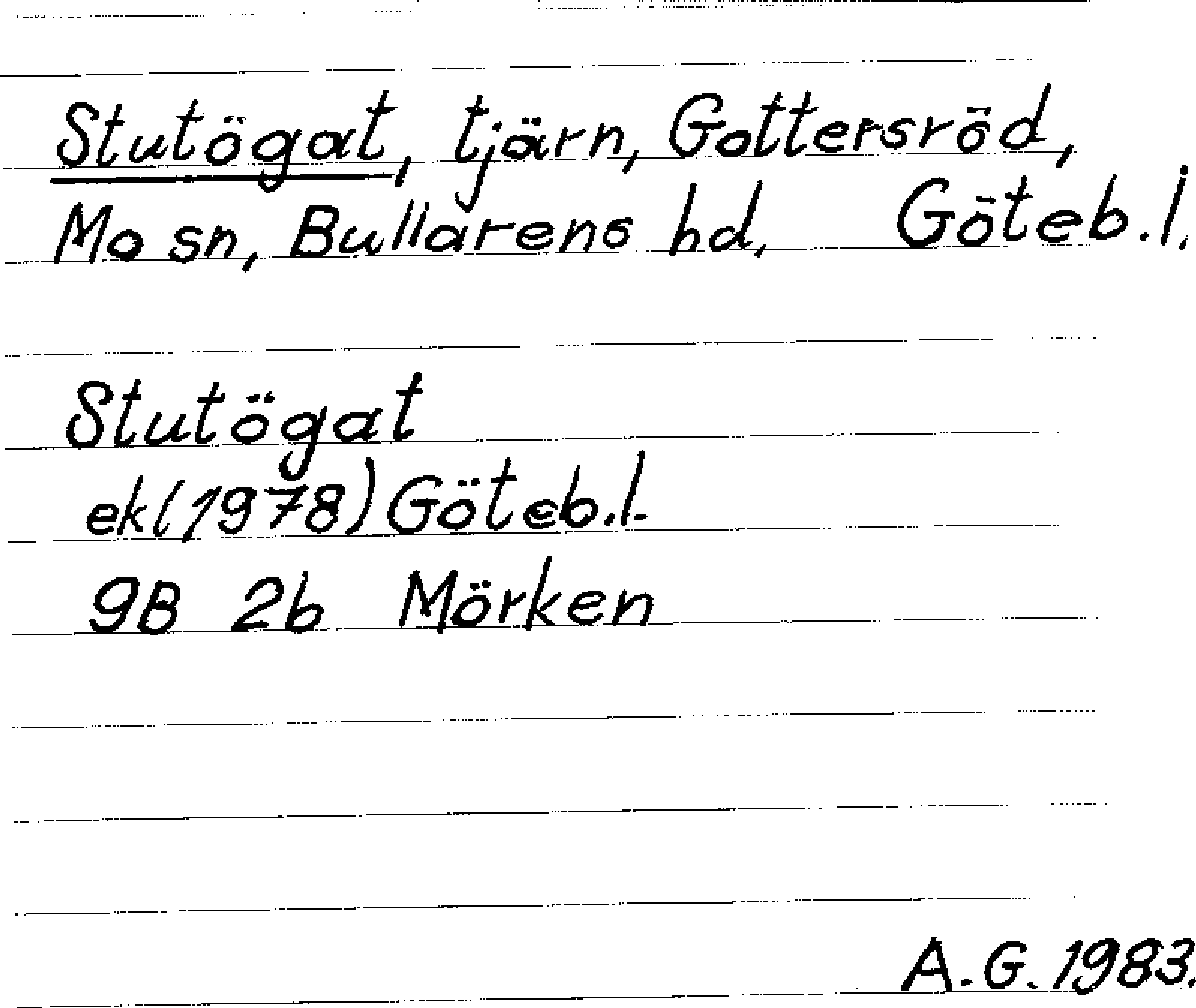 Stutögat, tjärn, Gottersröd,
Mo sn, Bullarens hd, Göteb.l.
Stutögat
ek(1978) Göteb.l.
9B 2b Mörken
A.G. 1983.